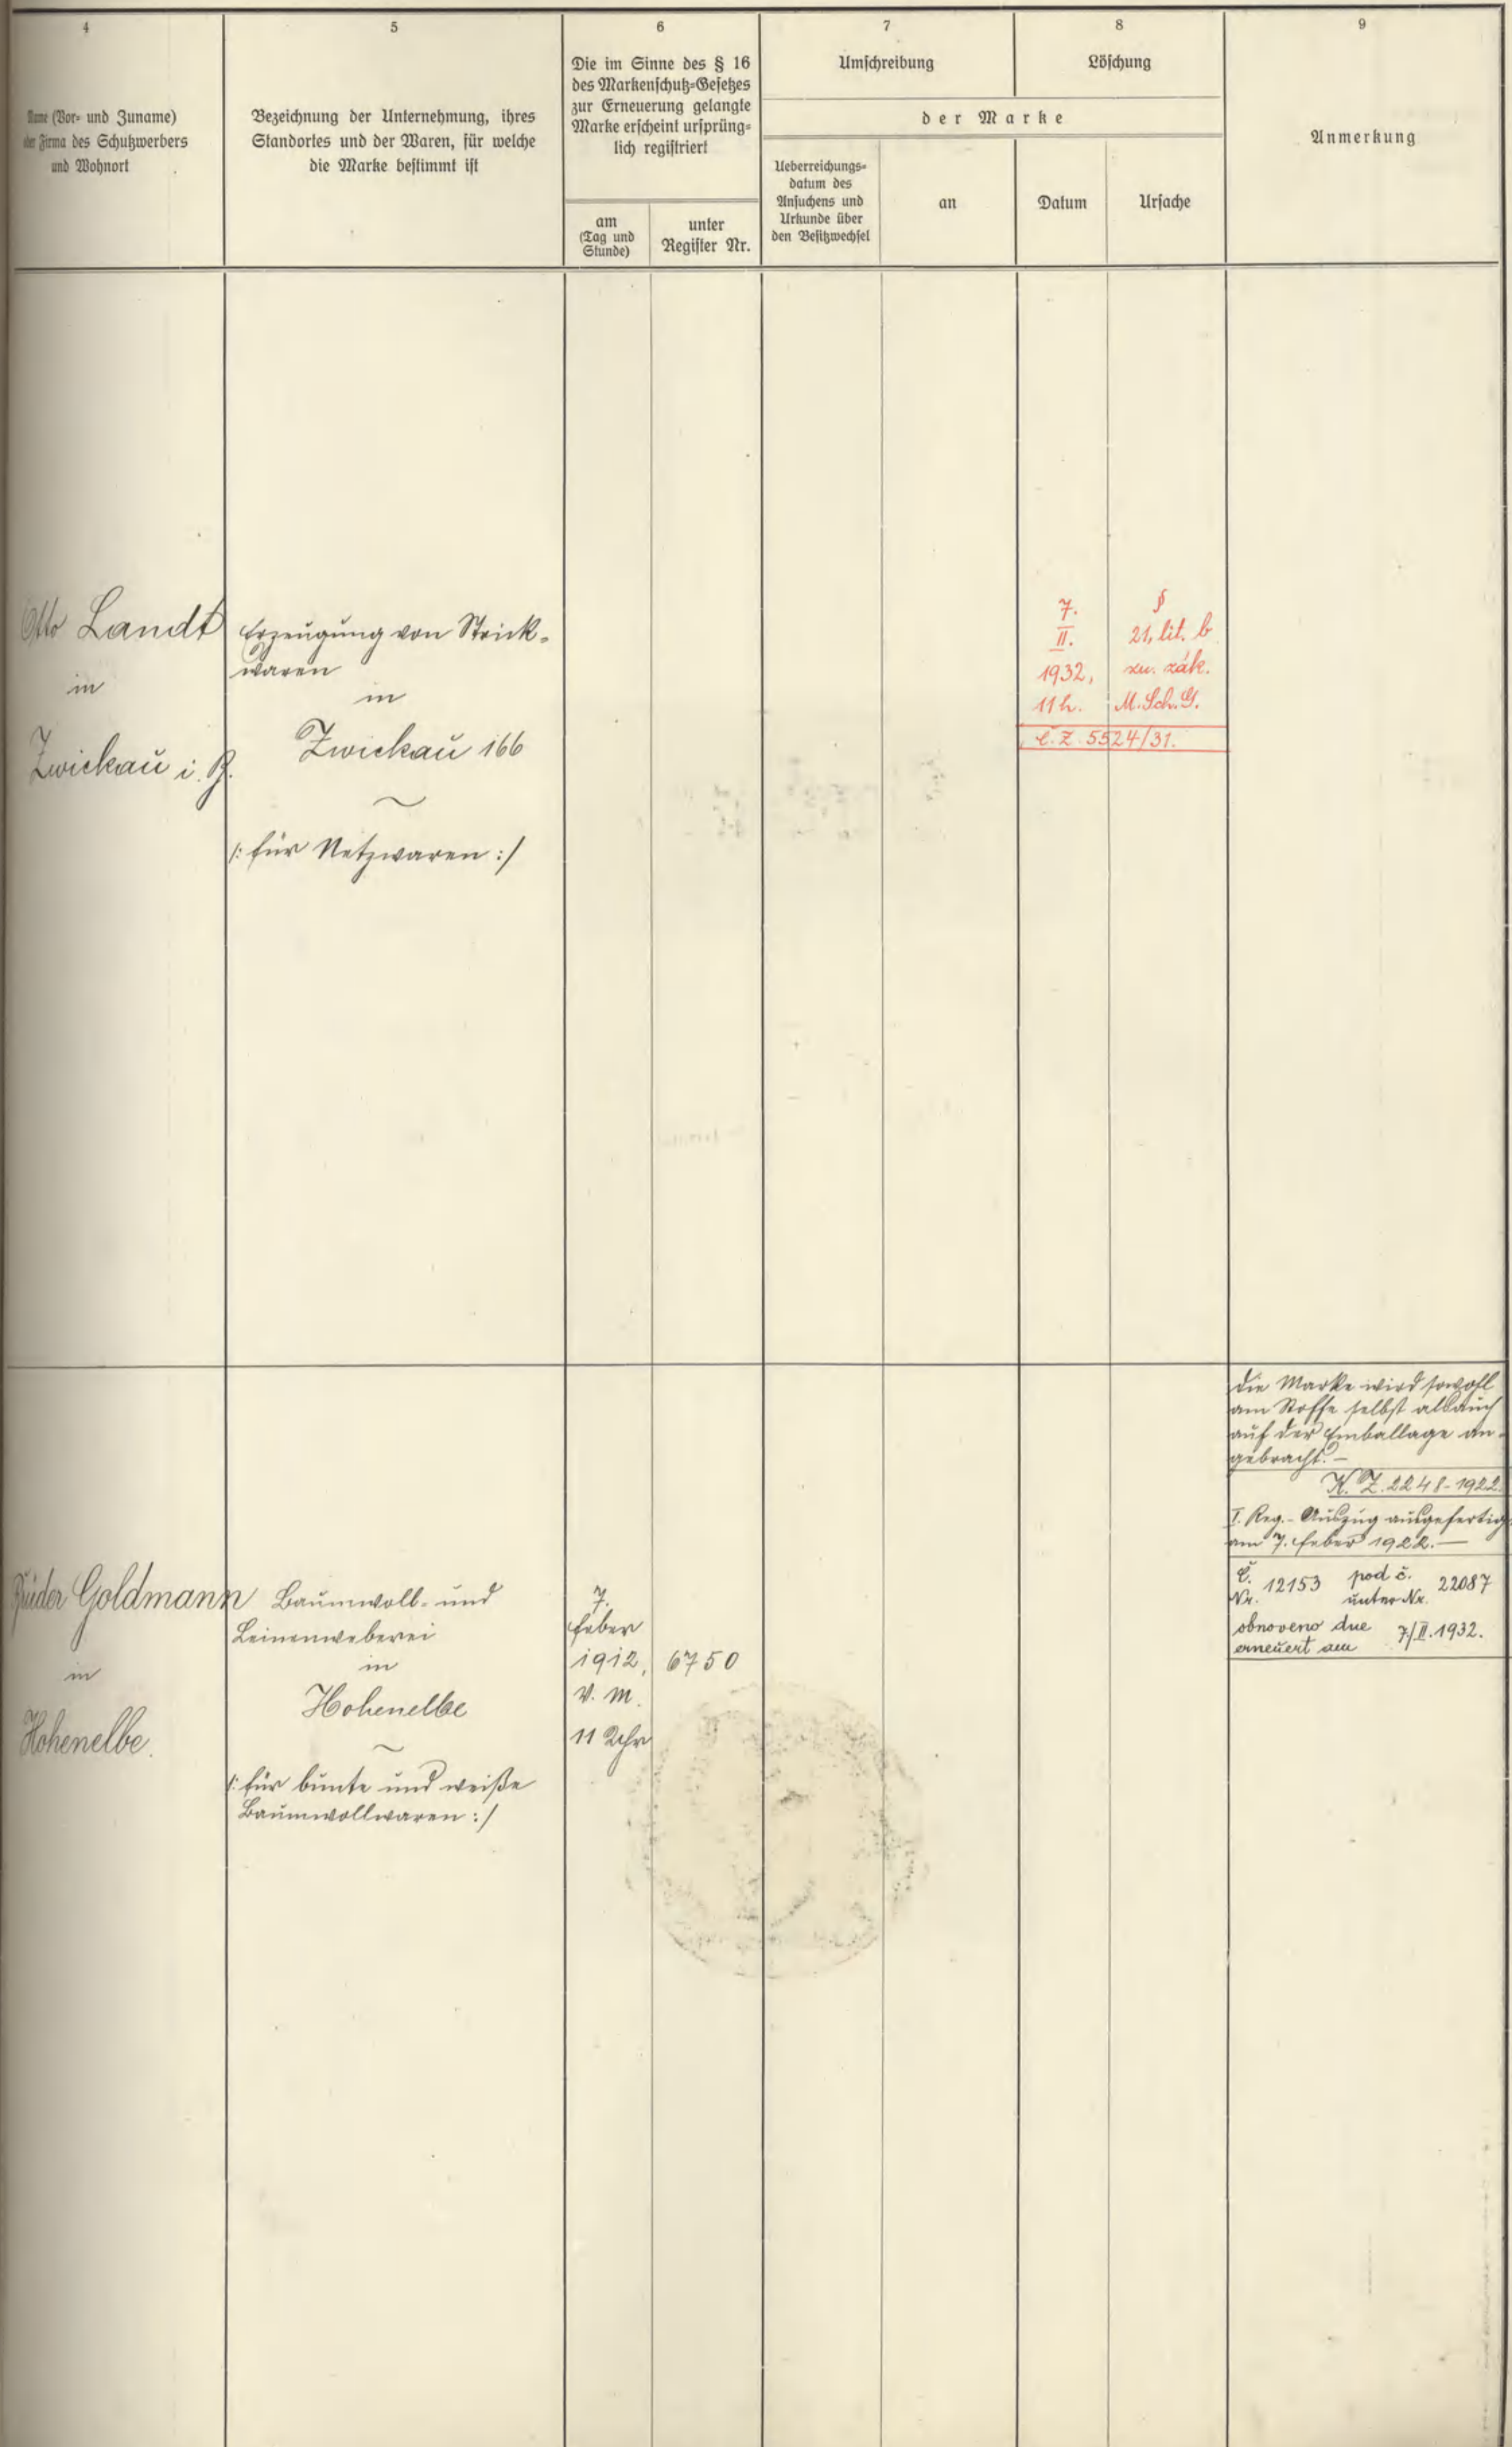 4
Name (Vor- und Zuname)
oder Firma des Schutzwerbers
und Wohnort
5
Bezeichnung der Unternehmung, ihres
Standortes und der Waren, für welche
die Marke bestimmt ist
6
Die im Sinne des § 16
des Markenschutz-Gesetzes
zur Erneuerung gelangte
Marke erscheint ursprüng-
lich registriert
am
(Tag und
Stunde)
unter
Register Nr.
7
Umschreibung
8
Löschung
der Marke
Ueberreichungs-
datum des
Ansuchens und
Urkunde über
den Besitzwechsel
an
Datum
Ursache
9
Anmerkung
Otto Landt
in
Zwickau i. B.
Erzeugung von Strick-
waren
in
Zwickau 166
/: für Netzwaren :/
7.
II.
1932,
11 h.
§
21, lit. b
zn. zák.
M. Sch. G.
č. Z. 5524/31.
Brüder Goldmann
in
Hohenelbe.
Baumwoll- und
Leinenweberei
in
Hohenelbe
/: für bunte und weiße
Baumwollwaren :/
7.
Feber
1912,
V. M.
11 Uhr
6750
Die Marke wird sowohl
am Stoffe selbst als auch
auf der Emballage an-
gebracht. –
K. Z. 2248-1922.
I. Reg.- Auszug ausgefertigt
am 7. Feber 1922. —
Č. 12153 pod č. 22087
Nr. unter Nr.
obnoveno dne 7/II. 1932.
erneuert am